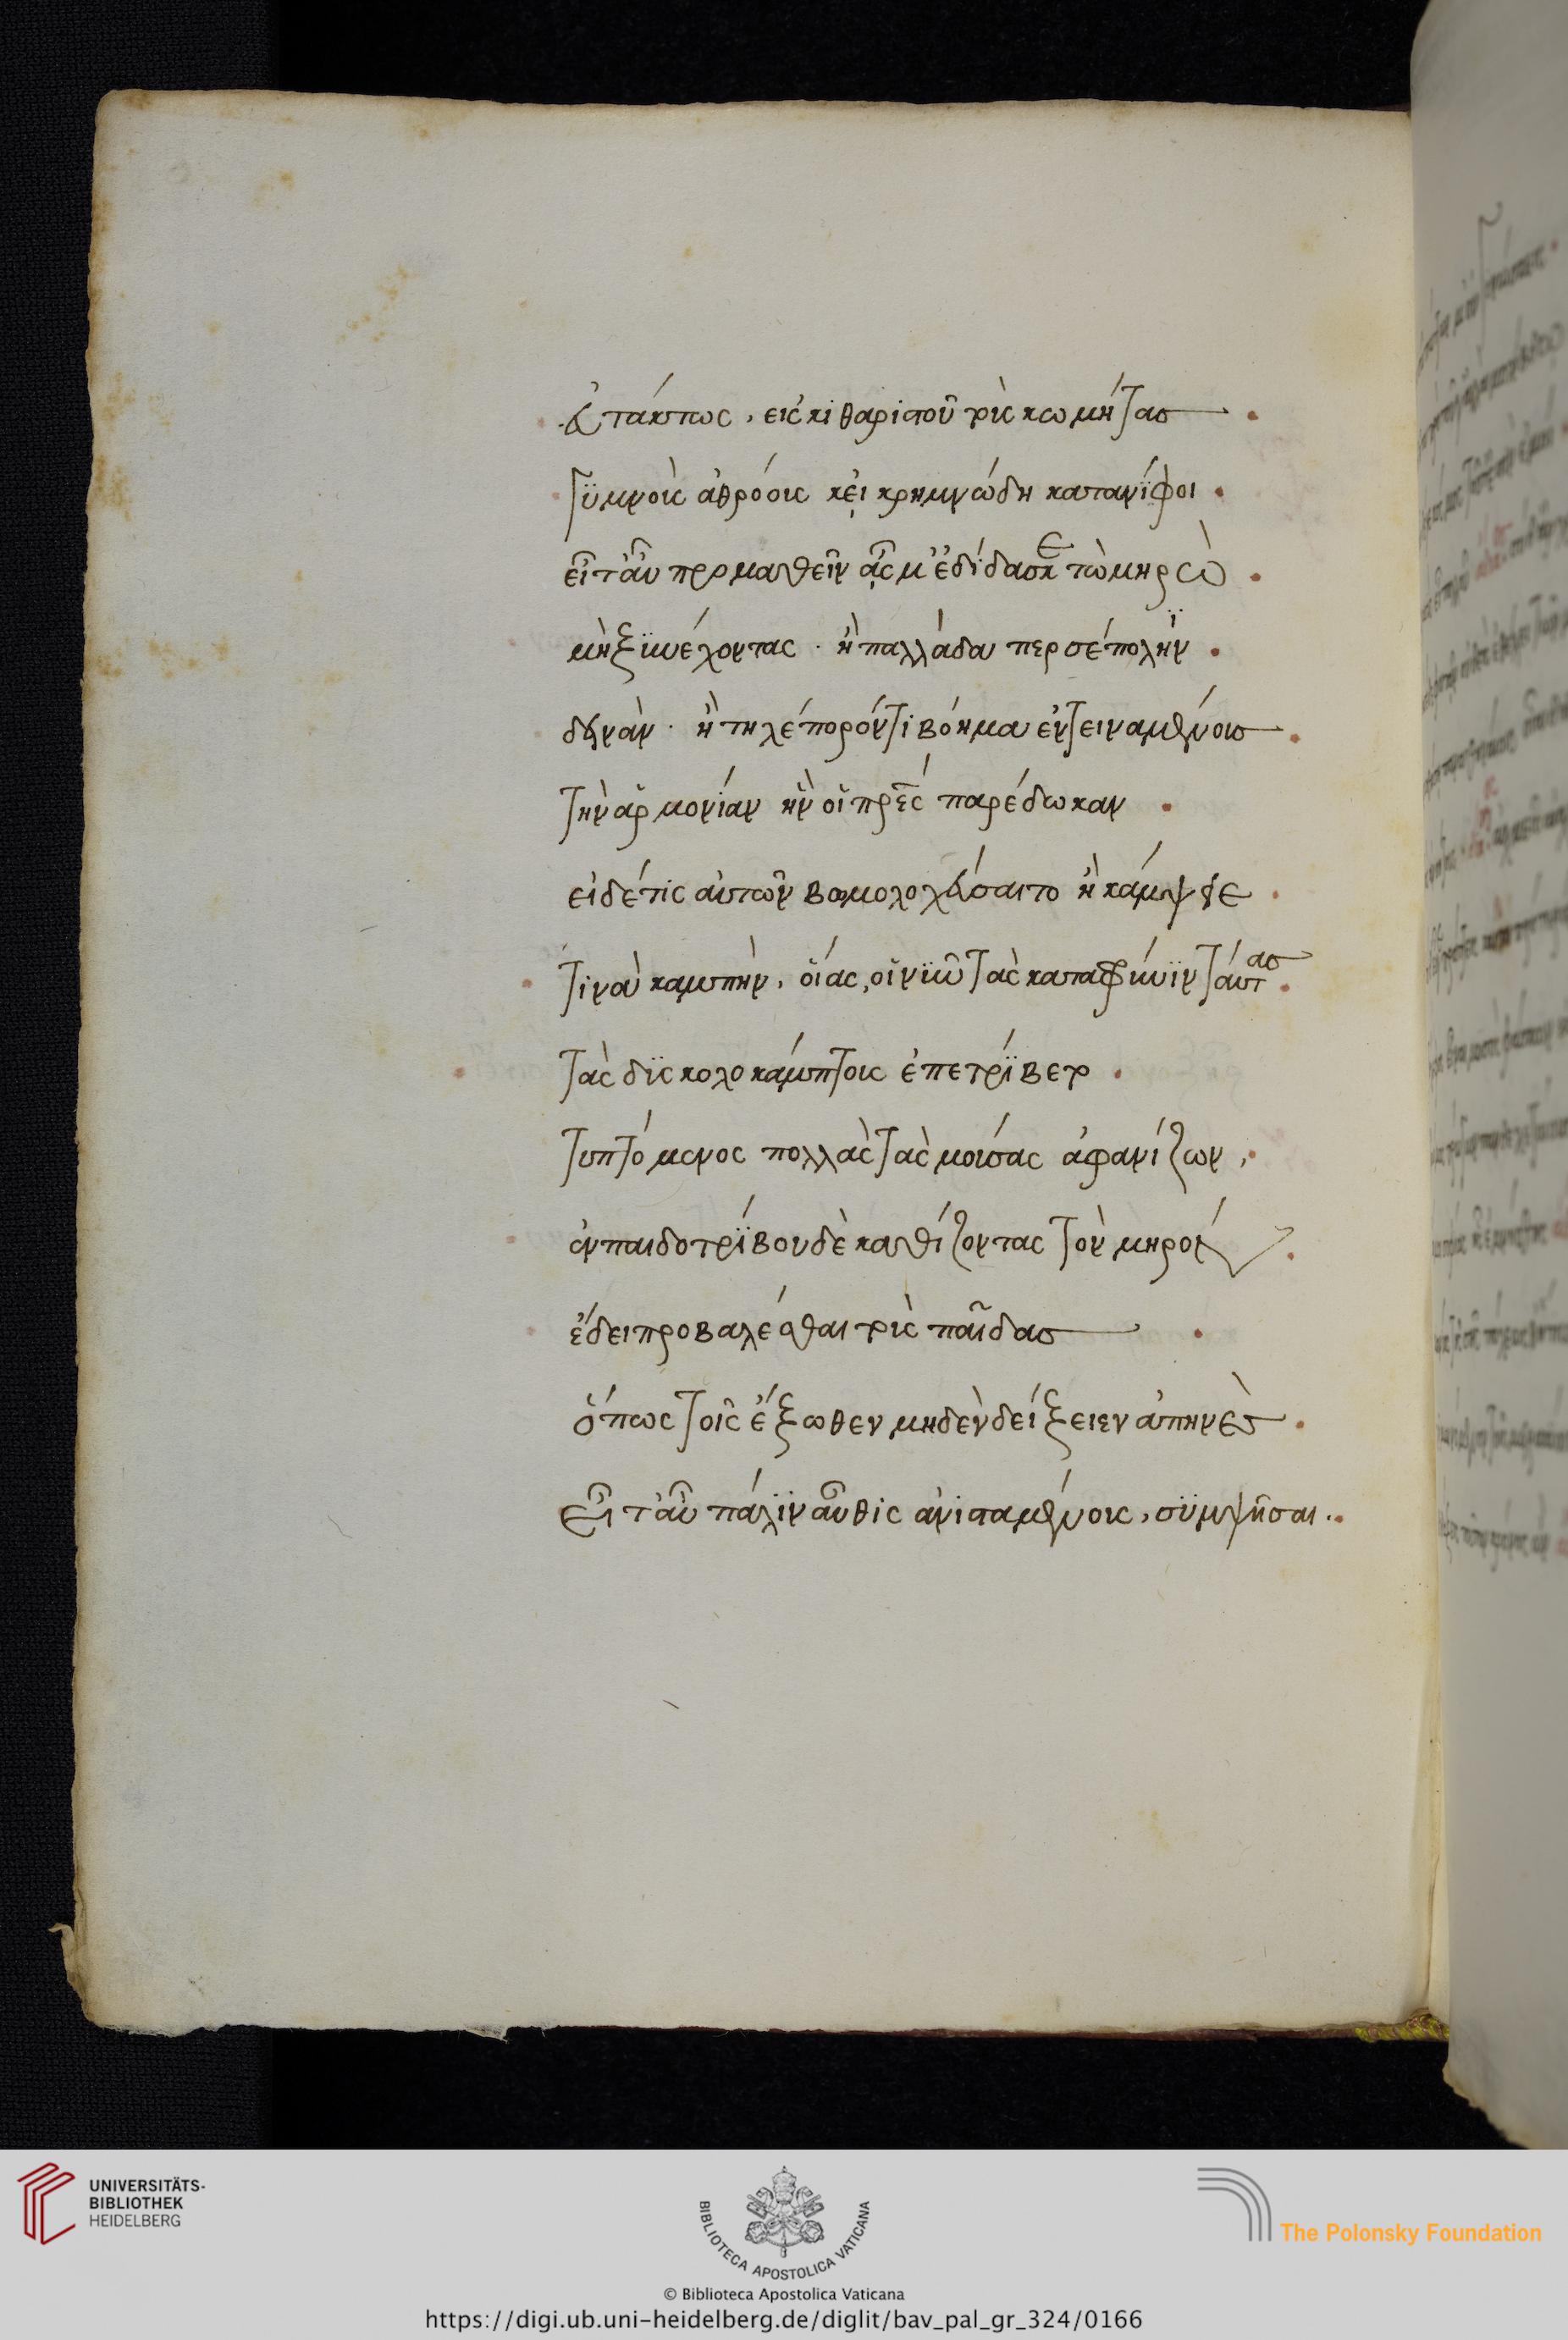 εὐτάκτως, εἰς κιθαριστοῦ τοὺς κωμήτας
γϋμνοὺς ἀθρόους κεἰ κρημνώδη κατανίφοι.
εἶτ' αὖ προμαθεῖν ᾆσμ' ἐδίδασκε τὼ μηρὼ.
μὴ ξϋνέχοντας. ἢ παλλάδα περσέπολϊν.
δεινὰν. ἢ τηλέπορόν τι βόημα ἐντειναμένους.
τὴν ἁρμονίαν ἣν οἱ πρες παρέδωκαν.
εἰ δέ τις αὐτῶν βωμολοχεύσαιτο ἢ κάμψειε
τινὰ καμπὴν, οἵας, οἱ νῦν τὰς κατὰ φρύνϊν ταύτας.
τὰς δϋσκολοκάμπτους ἐπετρίβετο.
τυπτόμενος πολλὰς τὰς μούσας ἀφανίζων,
ἐν παιδοτρίβου δὲ καθίζοντας τὸν μηρὸν
ἔδει προβαλέσθαι τοὺς παῖδας
ὅπως τοῖς ἔξωθεν μηδὲν δείξειεν ἀπηνὲς.
εἶτ' αὖ πάλϊν αὖθις ἀνισταμένους, σϋμψῆσαι.
UNIVERSITÄTS-
BIBLIOTHEK
HEIDELBERG
BIBLIOTECA APOSTOLICA VATICANA
© Biblioteca Apostolica Vaticana
The Polonsky Foundation
https://digi.ub.uni-heidelberg.de/diglit/bav_pal_gr_324/0166